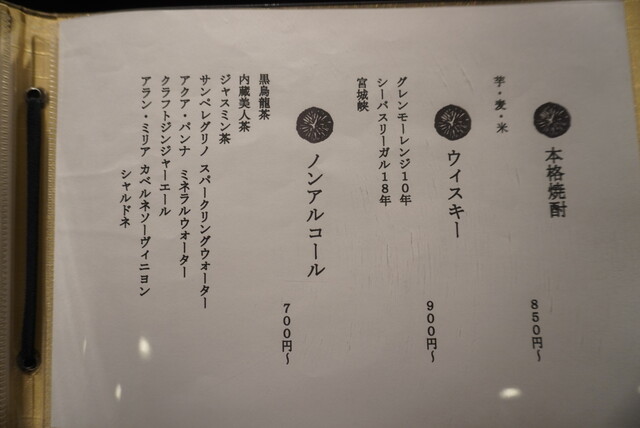 本格焼酎
850円~
芋・麦・米
ウイスキー
900円~
グレンモーレンジ10年
シーバスリーガル18年
宮城峡
ノンアルコール
700円~
黒烏龍茶
内蔵美人茶
ジャスミン茶
サンペレグリノ スパークリングウォーター
アクア・パンナ ミネラルウォーター
クラフトジンジャーエール
アラン・ミリア カベルネソーヴィニヨン
シャルドネ